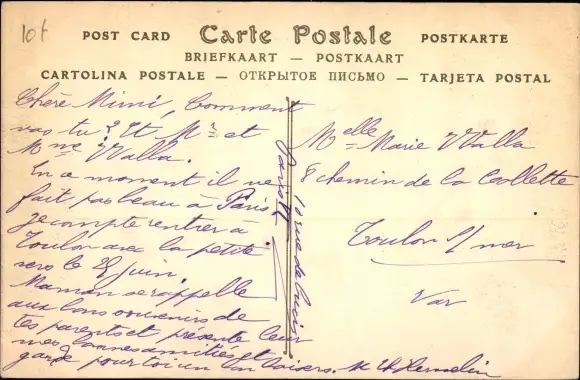 10f
POST CARD Carte Postale POSTKARTE
BRIEFKAART — POSTKAART
CARTOLINA POSTALE — ОТКРЫТОЕ ПИСЬМО — TARJETA POSTAL
Chère Mimi, Comment
vas tu ? Et Mr et
Mme Walla.
En ce moment il ne
fait pas beau à Paris
Je compte rentrer à
Toulon avec la petite
vers le 25 juin.
Maman se rappelle
aux bons souvenirs de
tes parents et présente leur
mes bonnes amitiés et
garde pour toi un bon baisers. M
Paris
10 rue de
Melle Marie Walla
8 chemin de la Collette
Toulon s/mer
Var